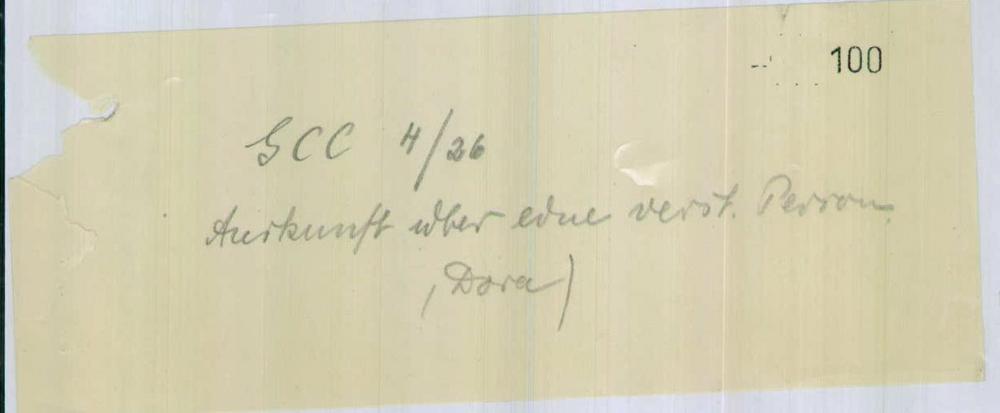 100
GCC 4/26
Auskunft über eine verst. Person.
(Dora)